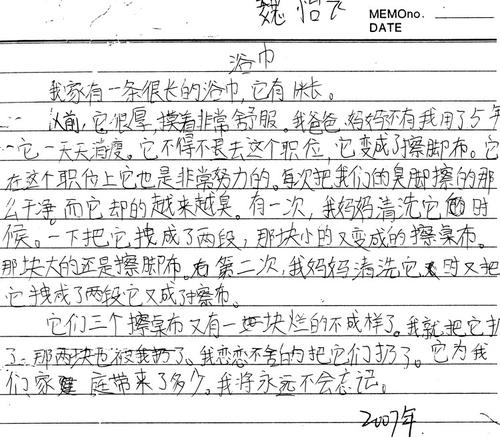 魏怡
MEMOno.
DATE
浴巾
我家有一条很长的浴巾,它有1米长。
以前,它很厚,摸着非常舒服。我爸爸,妈妈还有我用了5年
它一天天消瘦。它不得不退去这个职位,它变成了擦脚布。它
在这个职位上它也是非常努力的。每次把我们的臭脚擦的那
么干净,而它却的越来越臭。有一次,我妈妈清洗它的时
候。一下把它拽成了两段,那块小的又变成的擦桌布。
那块大的还是擦脚布。第二次,我妈妈清洗它时又把
它拽成了两段它又成了擦布。
它们三个擦桌布又有一块烂的不成样了。我就把它扔
了。那两块也被我扔了、我恋恋不舍的把它们扔了。它为我
们家庭带来了多少。我将永远不会忘记。
2007年